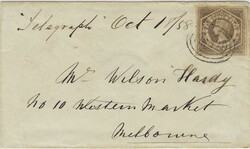 "Telegraph" Oct 11/58
Mr Wilson Hardy
No 10 Western Market
Melbourne